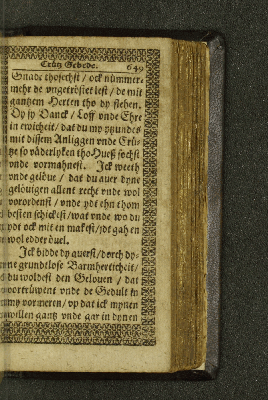 Crütz Gebede. 649
Gnade thosechst / ock nümmer-
mehr de vngetröstet lest / de mit
gantzem Herten tho dy flehen.
Dy sy Danck / Loff vnde Ehre
in ewicheit / dat du my ytzundes
mit dissem Anliggen vnde Crü-
tze so väderlyken tho Huß söchst
vnde vormahnest. Ick weeth
vnde gelöue / dat du auer dyne
gelöuigen allent recht vnde wol
vorordenst / vnde ydt ehn thom
besten schickest / wat vnde wo du
ydt ock mit en makest / ydt gah en
wol edder öuel.
Ick bidde dy auerst / dorch dy-
ne grundtlose Barmherticheit /
du woldest den Gelouen / dat
vortrüwent vnde de Gedult in
my vormeren / vp dat ick mynen
willen gantz vnde gar in dynen